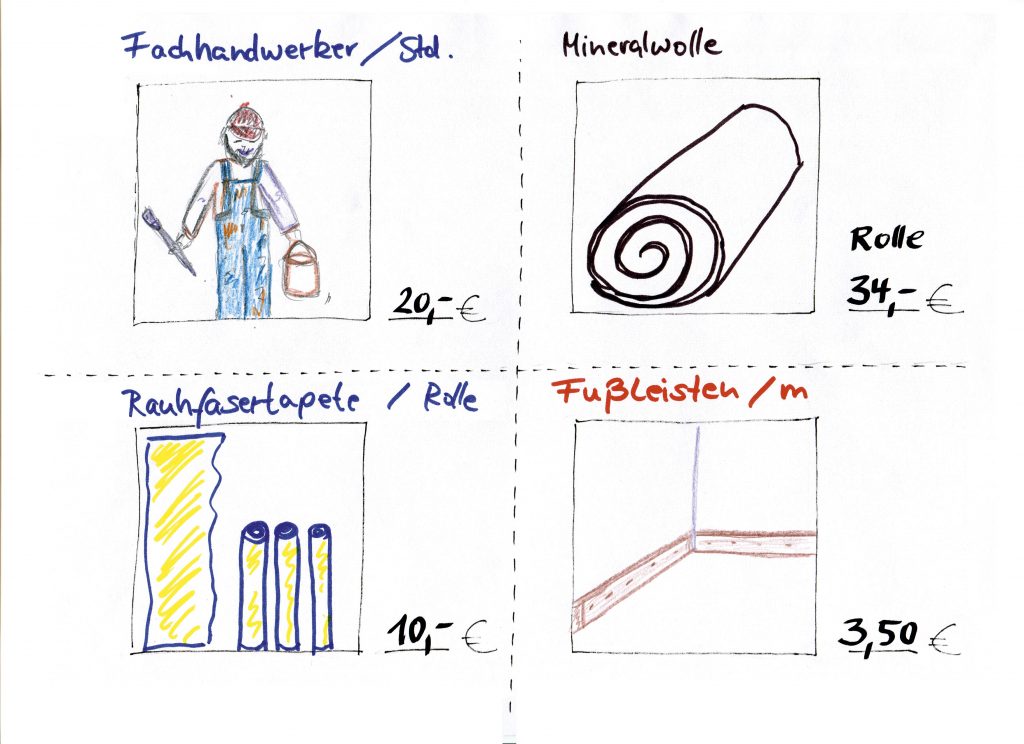 Fachhandwerker / Std.
20,- €
Mineralwolle
Rolle
34,- €
Rauhfasertapete / Rolle
10,- €
Fußleisten / m
3,50 €